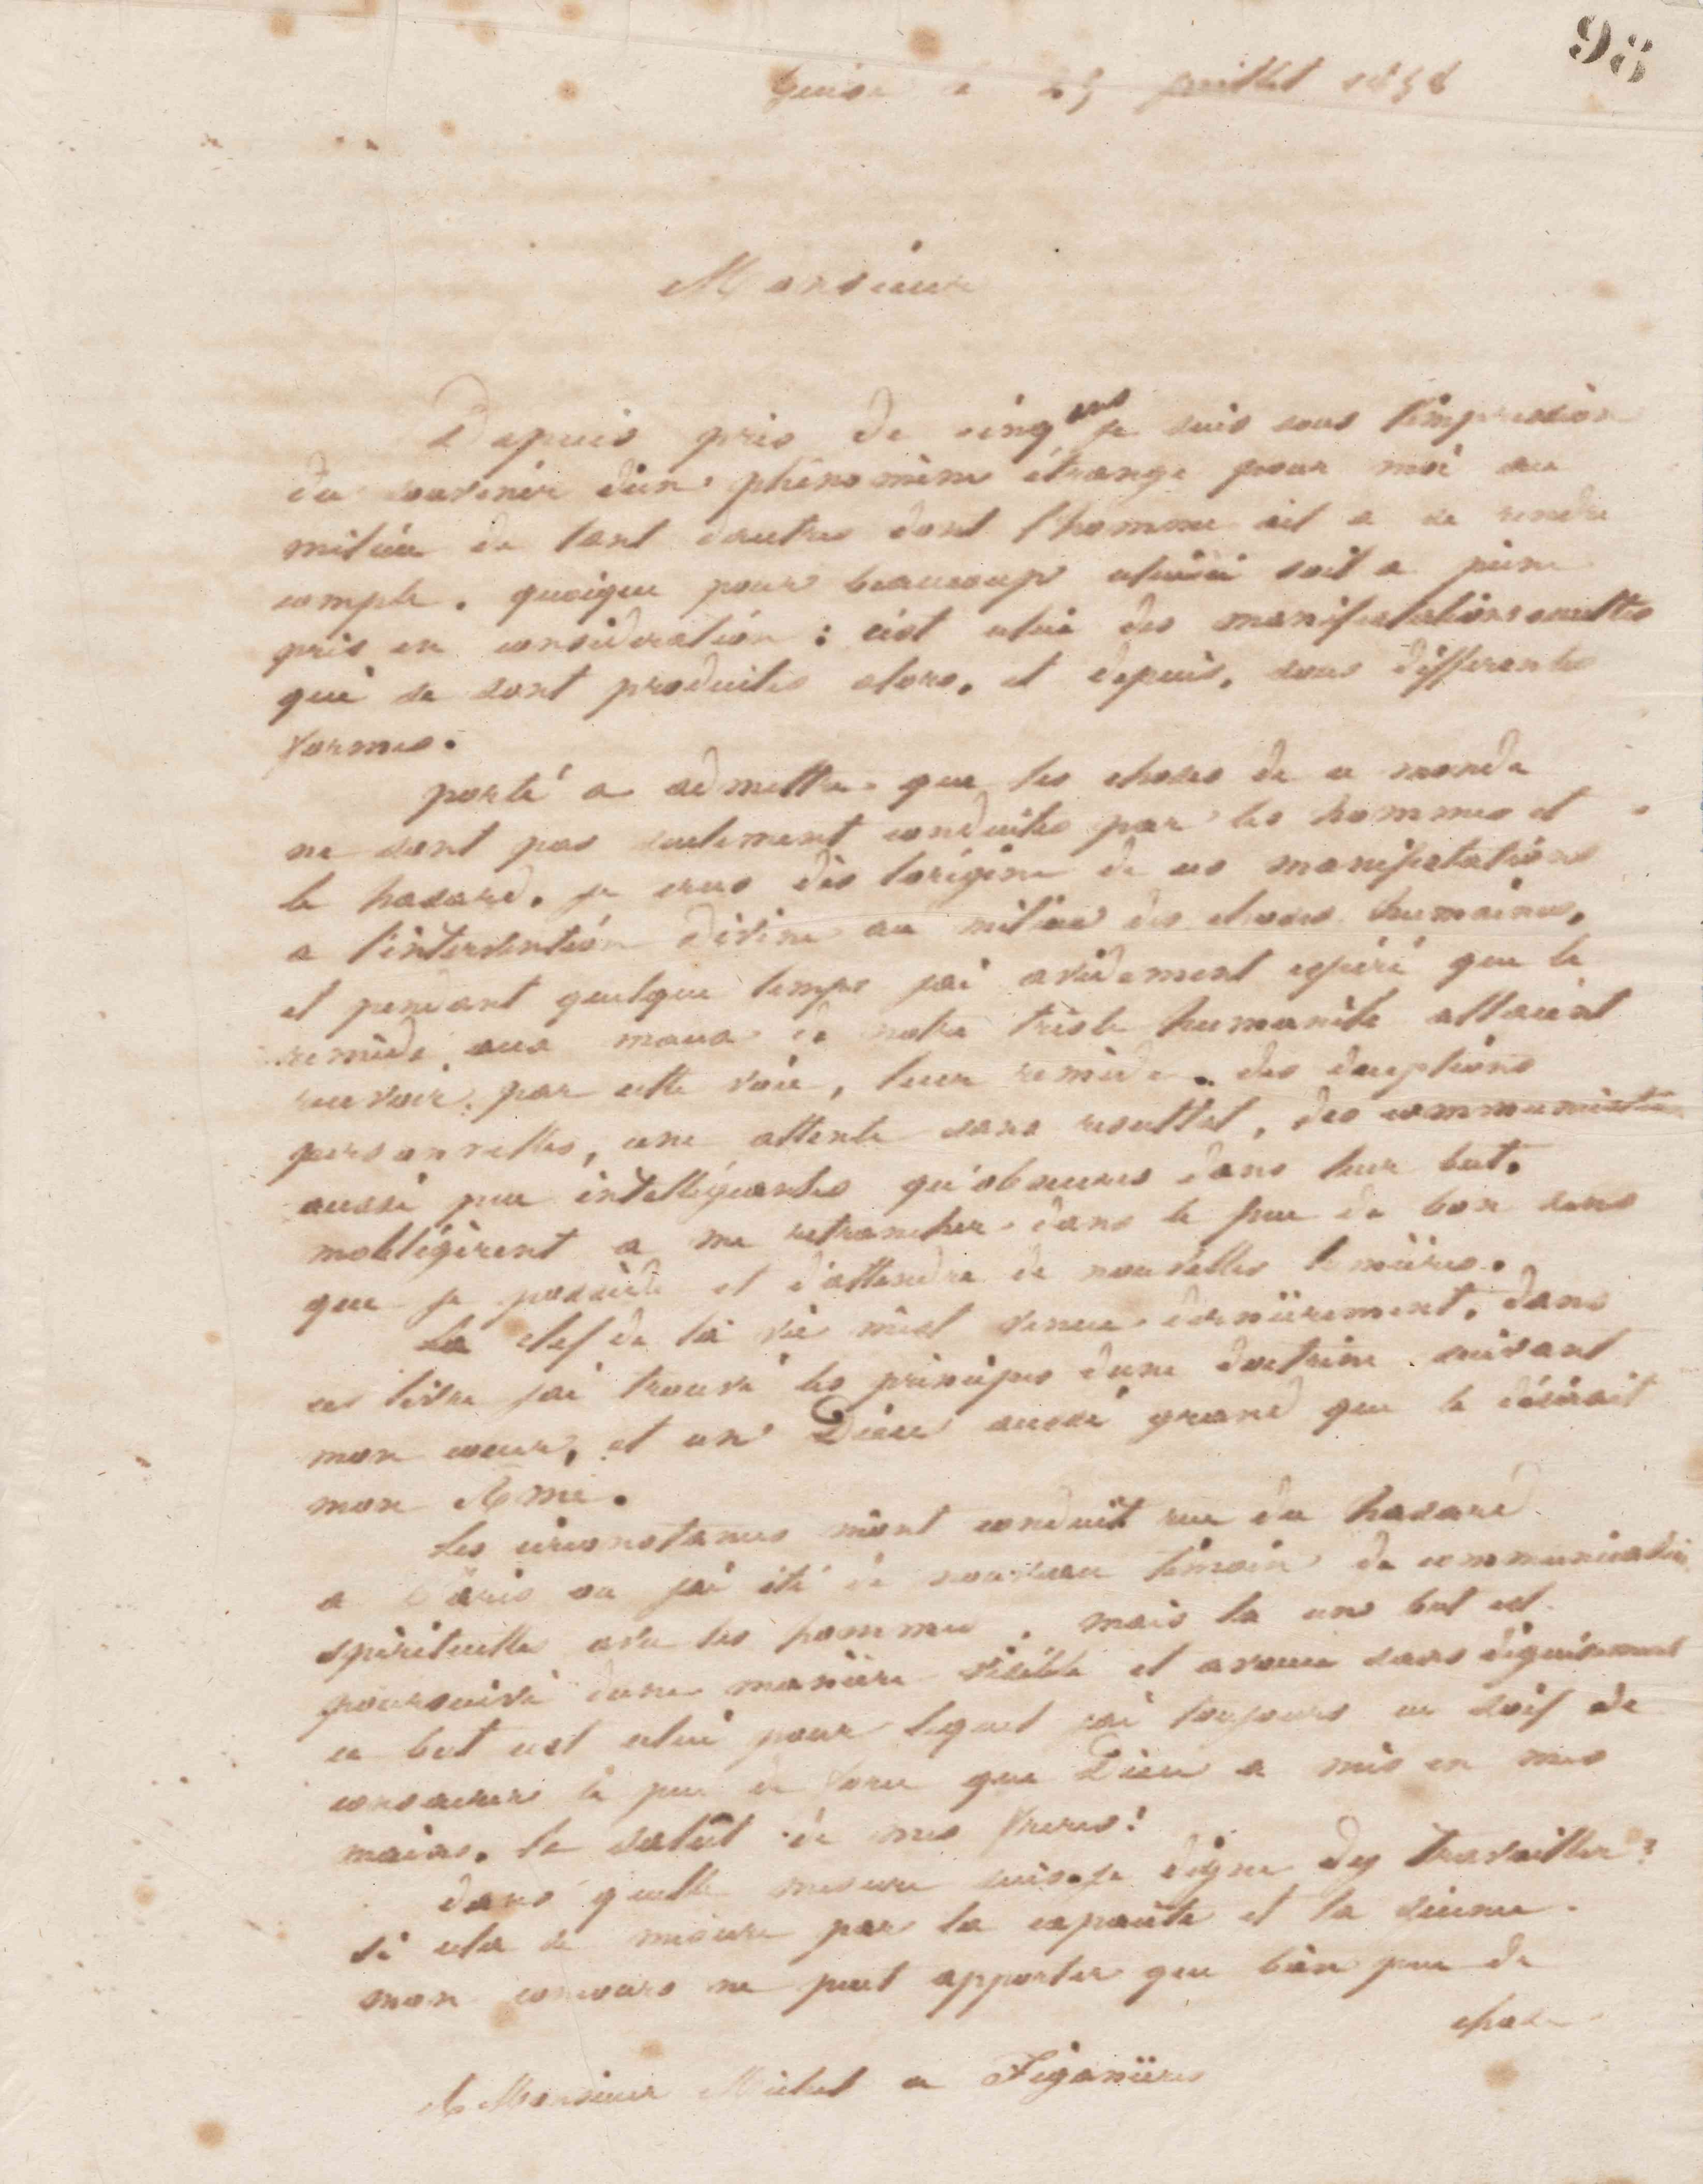 98
Guise le 25 juillet 1858
Monsieur
Depuis près de cinq ans je suis sous l'impression
du souvenir d'un phénomène étrange pour moi au
milieu de tant d'autres dont l'homme ait a se rendre
compte. quoique pour beaucoup celui ci soit a peine
pris en considération : c'est celui des manifestations occultes
qui se sont produites alors, et depuis, sous différentes
formes.
porté a admettre que les choses de ce monde
ne sont pas seulement conduites par les hommes et
le hasard, je crus dès l'origine de ces manifestations
a l'intervention divine au milieu des choses humaines,
et pendant quelque temps j'ai avidement espéré que le
remède aux maux de notre triste humanité allaient
recevoir par cette voie, leur remède. des déceptions
personnelles, une attente sans resultat, des communications
aussi peu intelligentes qu'obscures dans leur but,
m'obligèrent a me retrancher dans le peu de bon sens
que je possède et d'attendre de nouvelles lumières.
La clef de la vie m'est venue dernièrement, dans
ce livre j'ai trouvé les principes d'une doctrine suivant
mon coeur, et un Dieu aussi grand que le désirait
mon Ame.
Les circonstances m'ont conduit rue du hasard
a Paris ou j'ai été de nouveau témoin de communication
spirituelles avec les hommes, mais la un but est
poursuivi d'une manière visible et avouée sans déguisement
ce but est celui pour lequel j'ai toujours eu soif de
consacrer le peu de force que Dieu a mis en mes
mains, le salut de mes frères!
dans quelle mesure suis-je digne d'y travailler?
si cela se mesure par la capacité et la science.
mon concours ne peut apporter que bien peu de
chose
A Monsieur Michel a Figanières